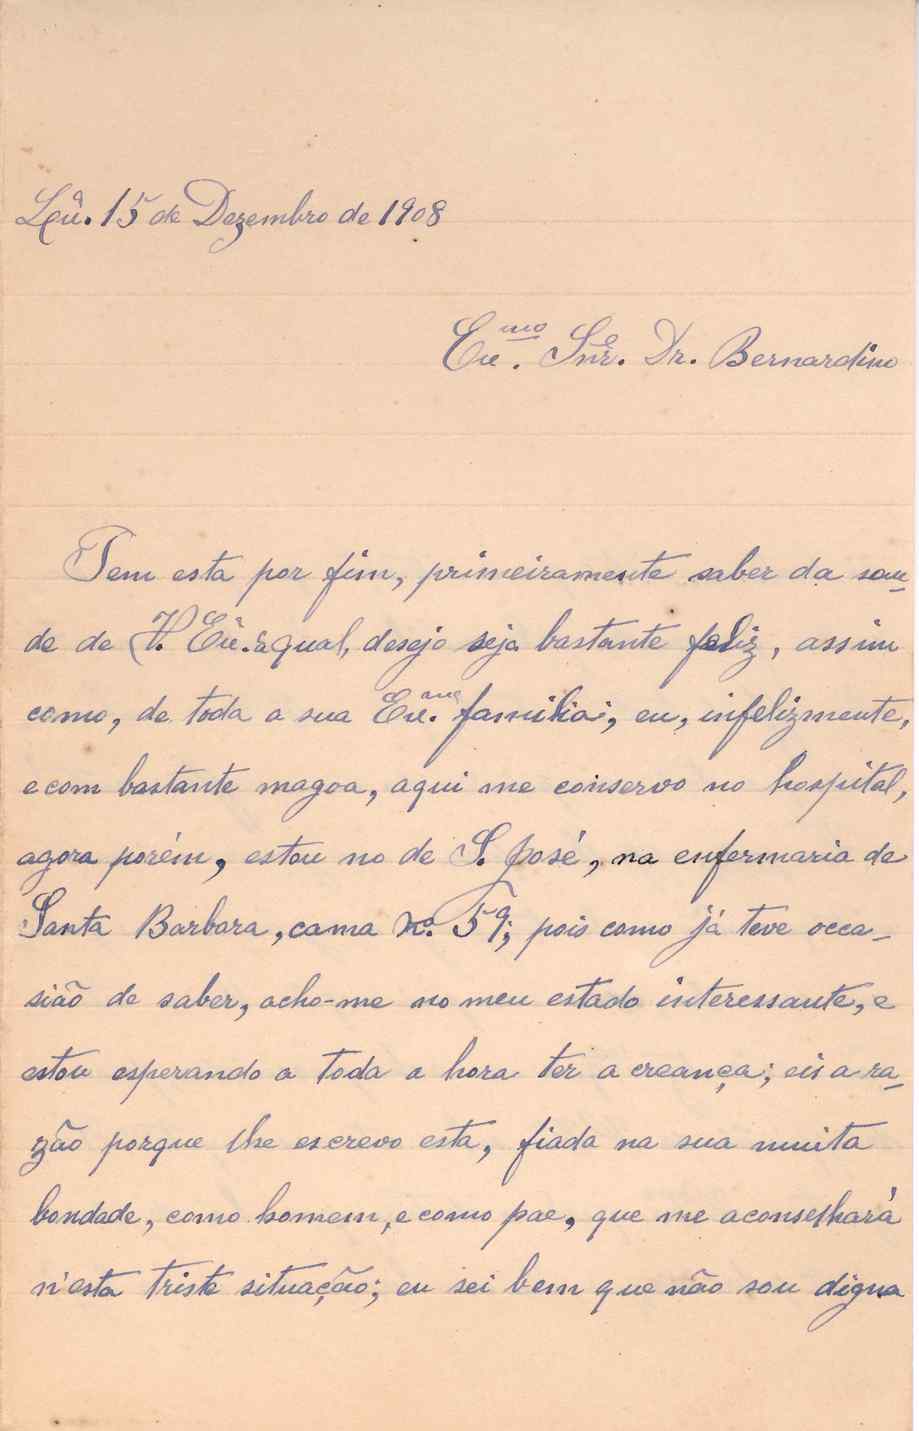 Lxª. 15 de Dezembro de 1908
Exmo. Snr. Dr. Bernardino
Tem esta por fim, primeiramente saber da sau-
de de V. Exª. a qual, desejo seja bastante feliz, assim
como, de toda a sua Exma. familia; eu, infelizmente,
e com bastante magoa, aqui me conservo no hospital,
agora porém, estou no de S. José, na enfermaria de
Santa Barbara, cama nº. 59; pois como já teve occa-
sião de saber, acho-me no meu estado interessante, e
estou esperando a toda a hora ter a creança; eis a ra-
zão porque lhe escrevo esta, fiada na sua muita
bondade, como homem, e como pae, que me aconselhará
n'esta triste situação; eu sei bem que não sou digna